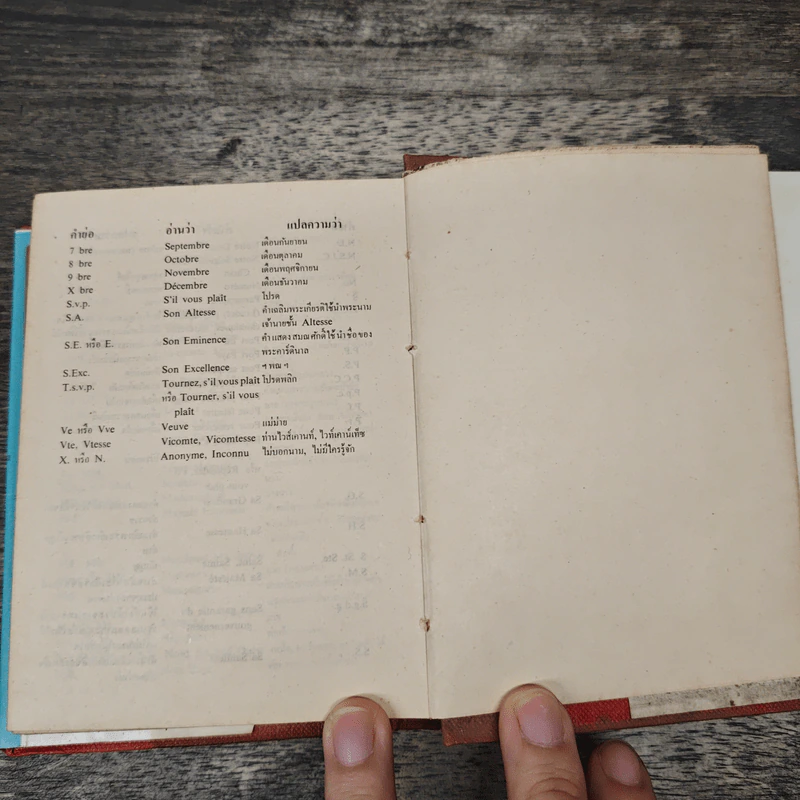 คำย่อ อ่านว่า แปลความว่า
7 bre Septembre เดือนกันยายน
8 bre Octobre เดือนตุลาคม
9 bre Novembre เดือนพฤศจิกายน
X bre Décembre เดือนธันวาคม
S.v.p. S'il vous plaît โปรด
S.A. Son Altesse คำเฉลิมพระเกียรติใช้นำพระนาม
เจ้านายชั้น Altesse
S.E. หรือ E. Son Eminence คำแสดงสมณศักดิ์ใช้นำชื่อของ
พระคาร์ดินาล
S.Exc. Son Excellence ฯพณฯ
T.s.v.p. Tournez, s'il vous plaît โปรดพลิก
หรือ Tourner, s'il vous
plaît
Ve หรือ Vve Veuve แม่ม่าย
Vte, Vtesse Vicomte, Vicomtesse ท่านไวส์เคานท์, ไวท์เคาน์เท็ซ
X. หรือ N. Anonyme, Inconnu ไม่บอกนาม, ไม่มีใครรู้จัก